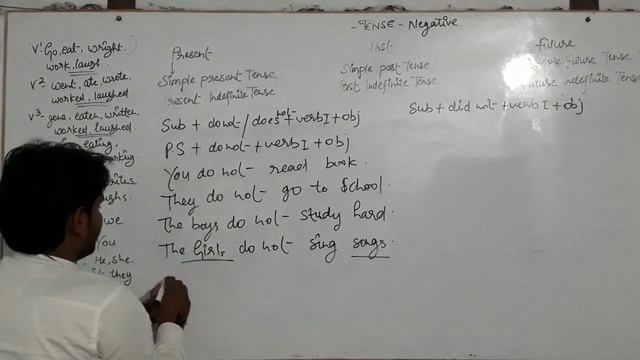 - TENSE - Negative
V¹ Go, eat, wright.
work, laugh
V² went, ate, wrote,
worked, laughed
V³- gone, eaten, written
worked laughed
eating
working
writes,
laughs.
we
You
He, She.
they
Present
Simple present Tense
Present Indefinite Tense
Sub + do not / does not + verb I + obj
PS + do not + verb I + obj
You do not read book.
They do not go to School.
The boys do not study hard.
The Girls do not sing songs.
Simple past Tense
Past Indefinite Tense
future
Simple Future Tense
Future indefinite Tense
Sub + did not + verb I + obj